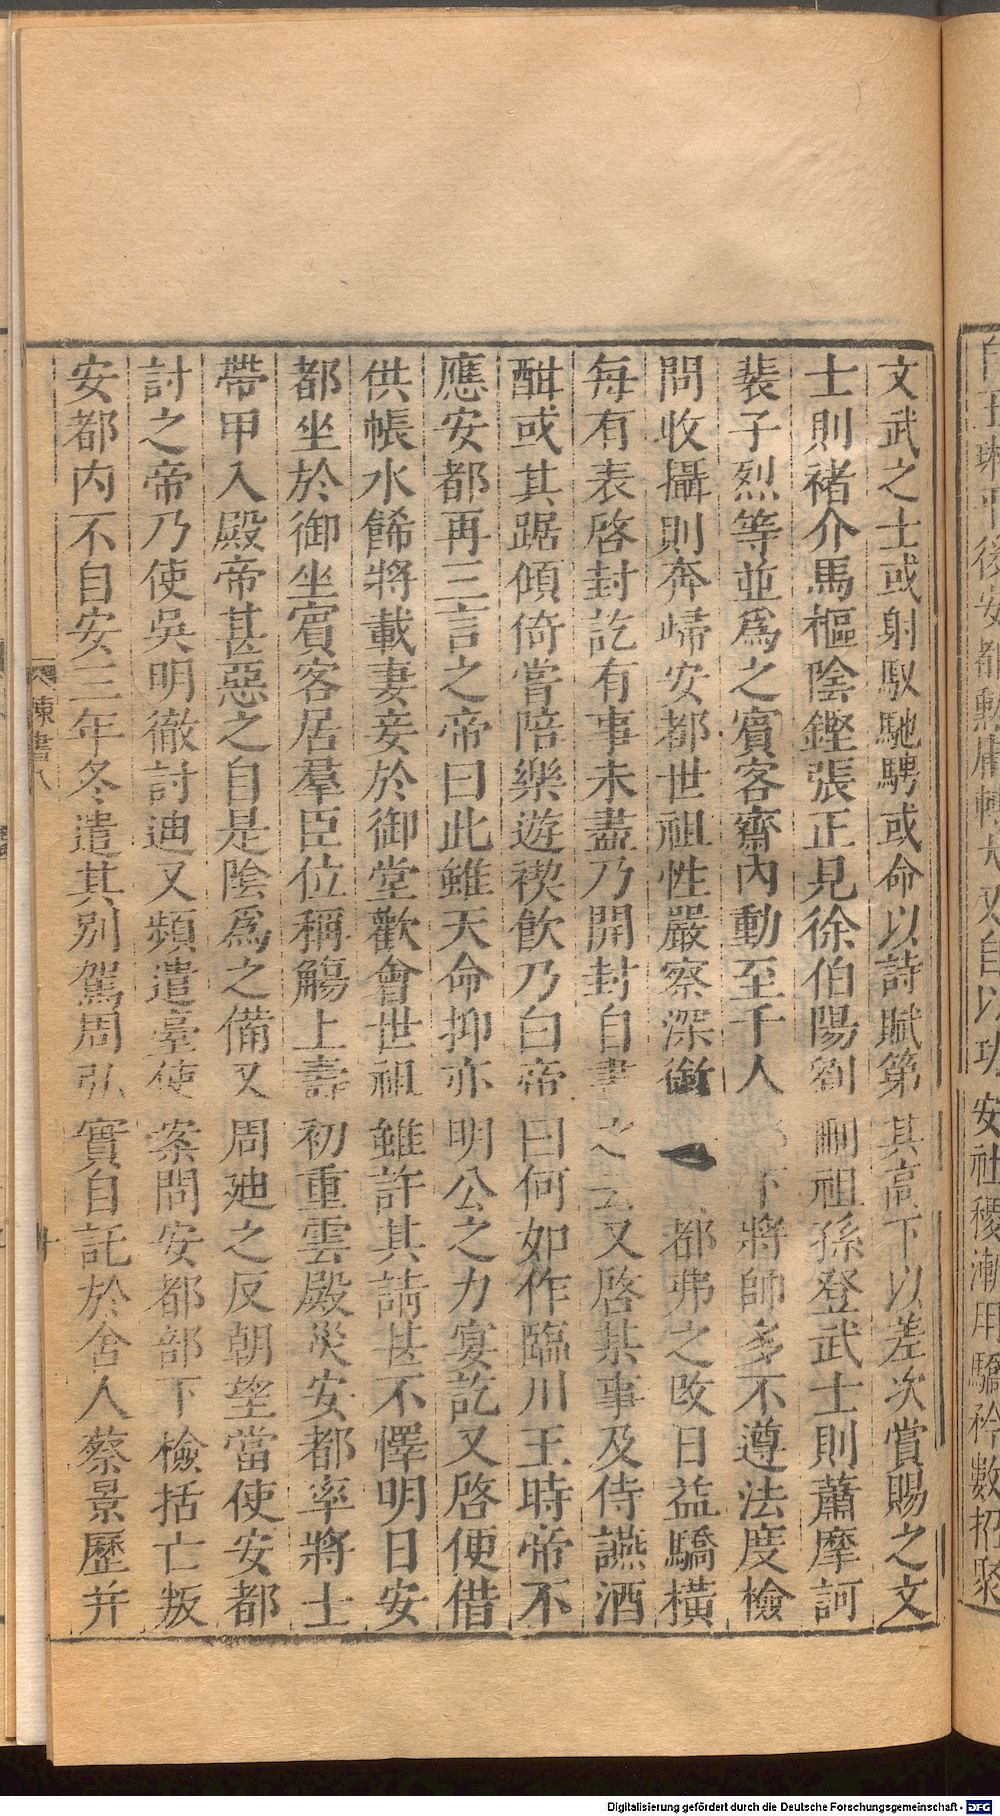 文武之士或射馭馳騁或命以詩賦第其高下以差次賞賜之文
士則褚介馬樞陰鏗張正見徐伯陽劉刪祖孫登武士則蕭摩訶
裴子烈等並爲之賓客齋內動至千人下將帥多不遵法度檢
問收攝則奔歸安都世祖性嚴察深銜都弗之改日益驕橫
每有表啓封訖有事未盡乃開封自書之云又啓某事及侍讌酒
酣或其踞傾倚嘗陪樂遊禊飲乃白帝曰何如作臨川王時帝不
應安都再三言之帝曰此雖天命抑亦明公之力宴訖又啓便借
供帳水餙將載妻妾於御堂歡會世祖雖許其請甚不懌明日安
都坐於御坐賓客居羣臣位稱觴上壽初重雲殿災安都率將士
帶甲入殿帝甚惡之自是陰爲之備又周廸之反朝望當使安都
討之帝乃使吳明徹討迪又頻遣臺使案問安都部下檢括亡叛
安都內不自安三年冬遣其別駕周弘實自託於舍人蔡景歷并
陳書八
Digitalisierung gefördert durch die Deutsche Forschungsgemeinschaft - DFG